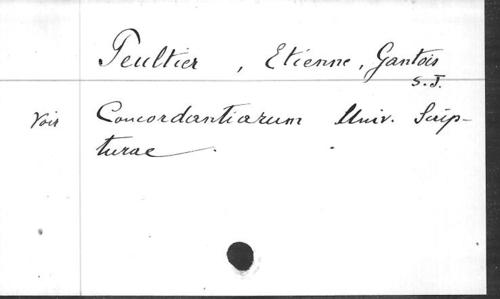 Peultier, Etienne, Gantois
S.J.
Voir Concordantiarum Univ. Scrip-
turae.